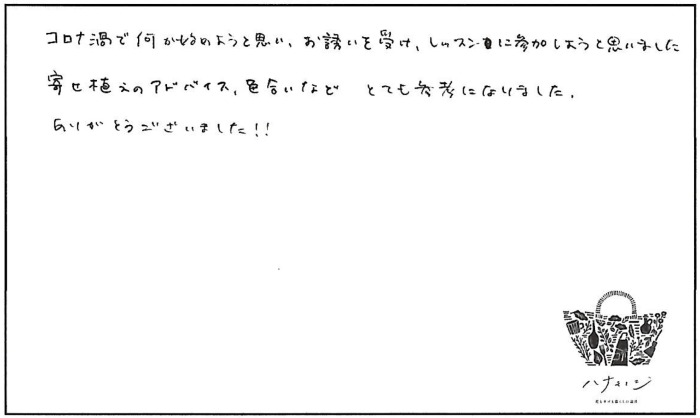 コロナ渦で何か始めようと思い、お誘いを受け、レッスンに参加しようと思いました
寄せ植えのアドバイス、色合いなど とても参考になりました。
ありがとうございました!!